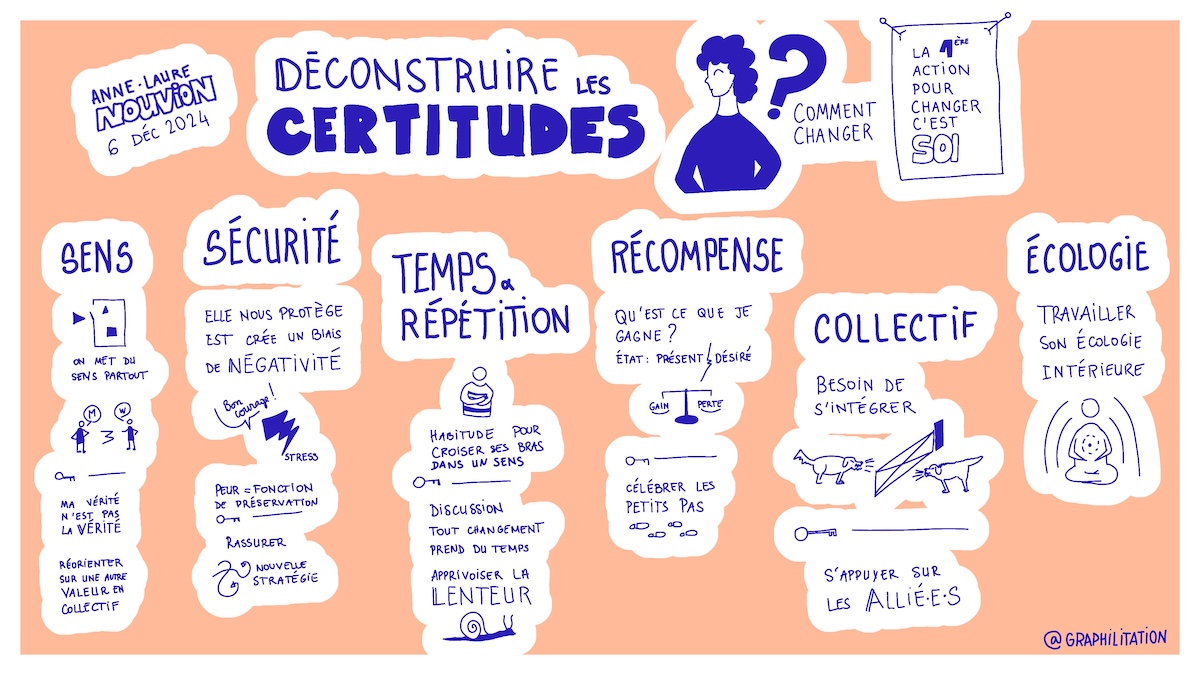 ANNE-LAURE
NOUVION
6 DÉC 2024
DÉCONSTRUIRE LES
CERTITUDES
?
COMMENT
CHANGER
LA 1ÈRE
ACTION
POUR
CHANGER
C'EST
SOI
SENS
ON MET DU
SENS PARTOUT
M
W
MA VÉRITÉ
N'EST PAS
LA VÉRITÉ
RÉORIENTER
SUR UNE AUTRE
VALEUR EN
COLLECTIF
SÉCURITÉ
ELLE NOUS PROTÈGE
EST CRÉE UN BIAIS
DE NÉGATIVITÉ
Bon
courage!
STRESS
PEUR = FONCTION
DE PRÉSERVATION
RASSURER
NOUVELLE
STRATÉGIE
TEMPS &
RÉPÉTITION
HABITUDE POUR
CROISER SES BRAS
DANS UN SENS
DISCUSSION
TOUT CHANGEMENT
PREND DU TEMPS
APPRIVOISER LA
LENTEUR
RÉCOMPENSE
QU'EST CE QUE JE
GAGNE ?
ÉTAT : PRÉSENT DÉSIRÉ
GAIN PERTE
CÉLÉBRER LES
PETITS PAS
COLLECTIF
BESOIN DE
S'INTÉGRER
S'APPUYER SUR
LES ALLIÉ·E·S
ÉCOLOGIE
TRAVAILLER
SON ÉCOLOGIE
INTÉRIEURE
@GRAPHILITATION